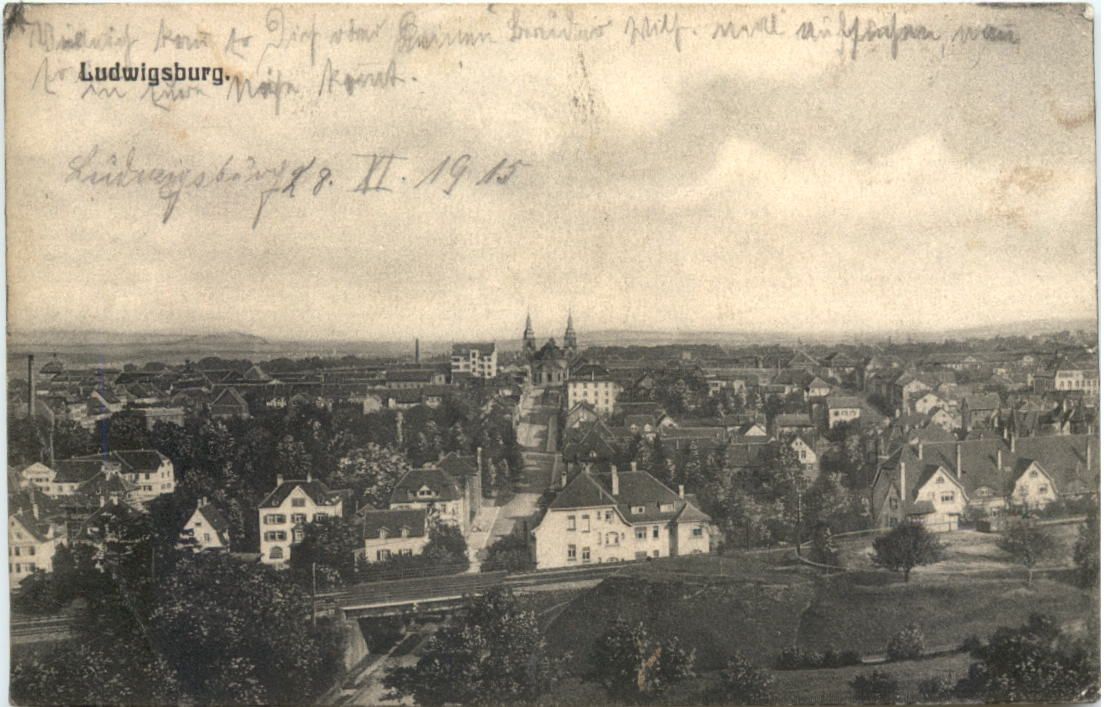 Vielleicht kann so Dich oder Deinen Bruder Wilh. mal aufsuchen, wenn
so in eure Nähe kommt.
Ludwigsburg.
Ludwigsburg 28. XI. 1915